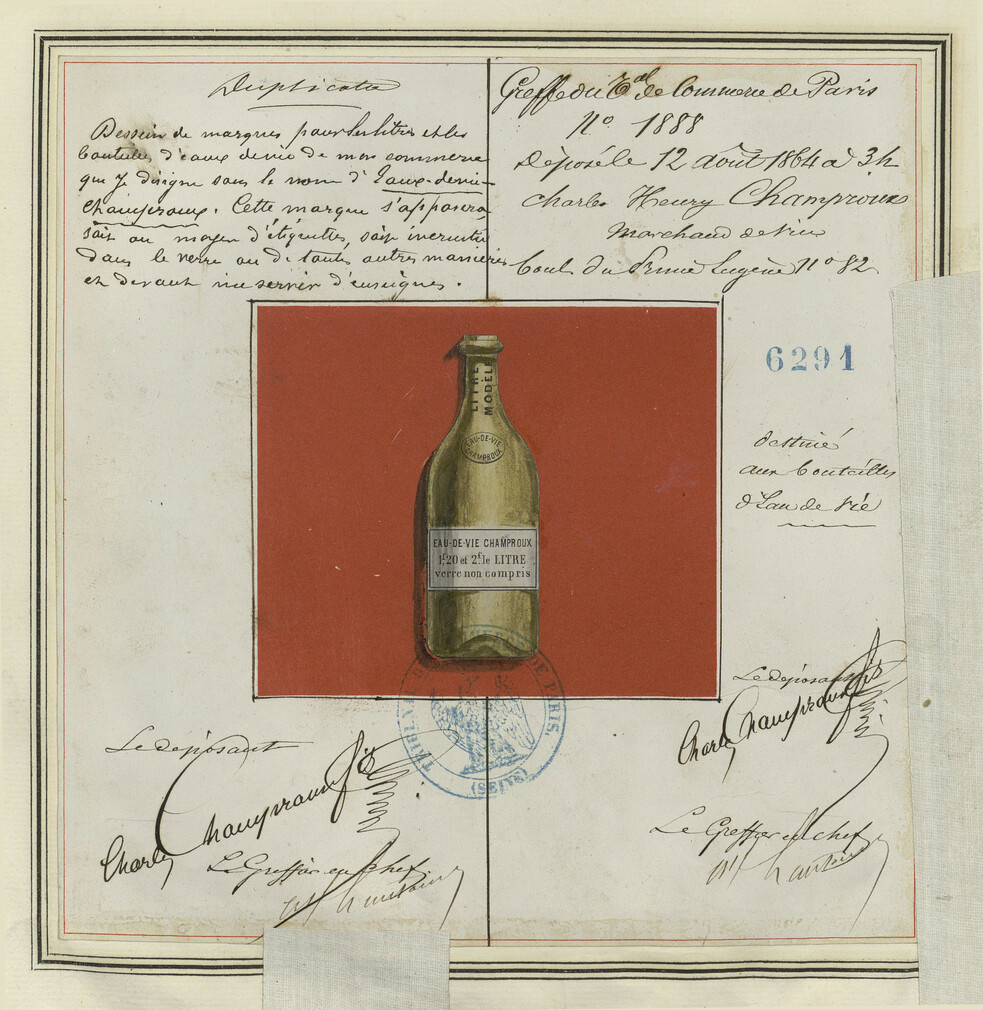 Duplicata
Dessein de marques pour les litres et les
bouteilles d'eaux de vie de mon commerce
que je désigne sous le nom d'Eaux-de-vie-
Champroux. Cette marque s'apposera
soit au moyen d'étiquettes, soit incrustée
dans le verre ou de toutes autres manières
et devant me servir d'enseignes.
Greffe du Tal de Commerce de Paris
No 1888
Déposé le 12 août 1864 à 3h
Charles Henry Champroux
Marchand de vin
boul. du Prince Eugène No 82
6291
destiné
aux bouteilles
d'Eau de Vie
LITRE
MODÈLE
EAU-DE-VIE
CHAMPROUX
EAU-DE-VIE CHAMPROUX
1f.20 et 2f. le LITRE
verre non compris
TRIBUNAL DE PARIS.
(SEINE)
Le déposant
Charles Champroux fils
Le Greffier en chef
Le déposant
Charles Champroux fils
Le Greffier en chef